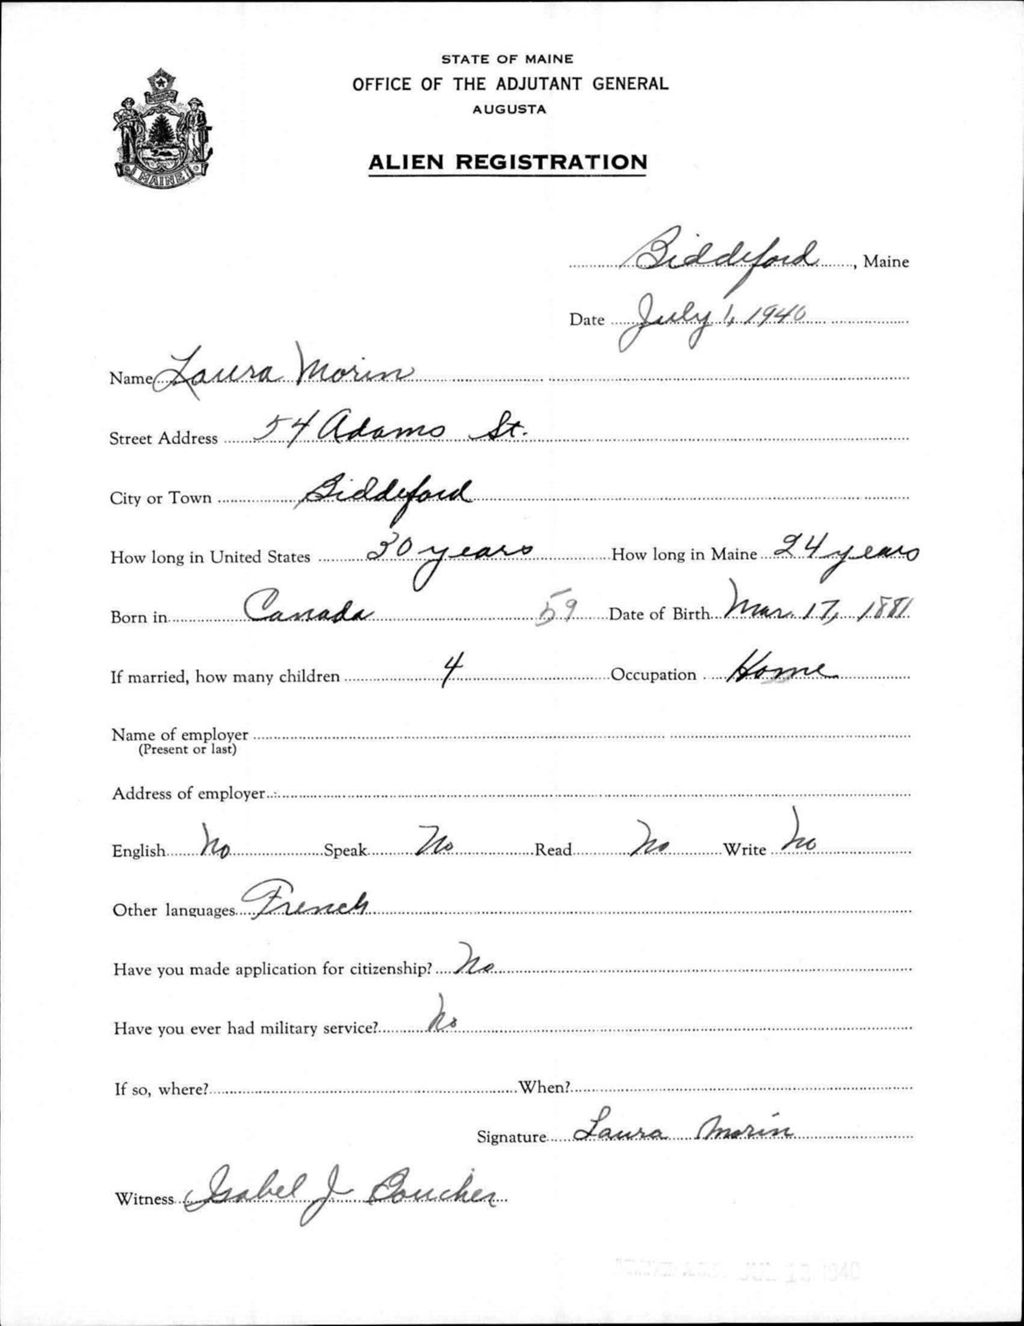 STATE OF MAINE
OFFICE OF THE ADJUTANT GENERAL
AUGUSTA
ALIEN REGISTRATION
MAINE
Biddeford, Maine
Date July 1, 1940
Name Laura Morin
Street Address 54 Adams St.
City or Town Biddeford
How long in United States 30 years How long in Maine 24 years
Born in Canada 59 Date of Birth Mar. 17, 1881
If married, how many children 4 Occupation Home
Name of employer
(Present or last)
Address of employer
English No Speak No Read No Write No
Other languages French
Have you made application for citizenship? No
Have you ever had military service? No
If so, where? When?
Signature Laura Morin
Witness Isabel J Boucher
JUL 13 1940